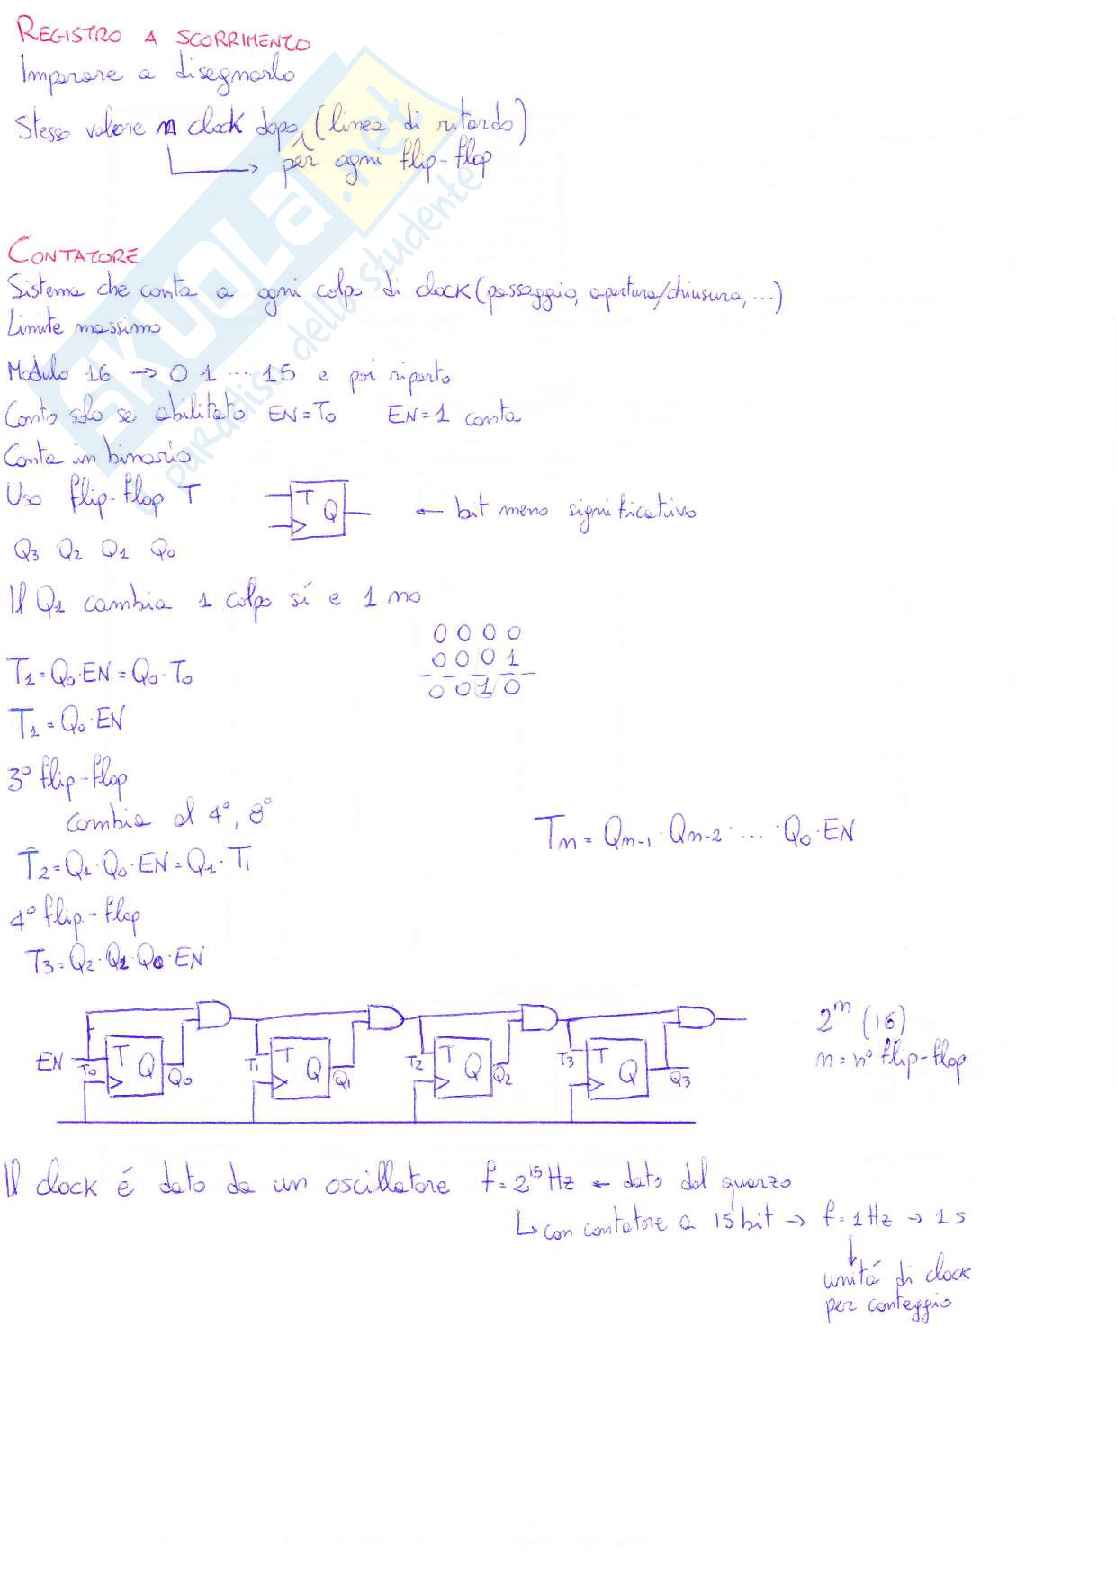 REGISTRO A SCORRIMENTO
Imparare a disegnarlo
Stesso valore n clock dopo (linea di ritardo)
per ogni flip-flop
CONTATORE
Sistema che conta a ogni colpo di clock (passaggio, apertura/chiusura, ...)
Limite massimo
Modulo 16 → 0 1 ... 15 e poi riparto
Conto solo se abilitato EN=T0 EN=1 conta
Conta in binario
Uso flip-flop T
T Q
← bit meno significativo
Q3 Q2 Q1 Q0
Il Q1 cambia 1 colpo sí e 1 no
0 0 0 0
0 0 0 1
0 0 1 0
T1=Q0·EN=Q0·T0
T1=Q0·EN
3° flip-flop
cambia al 4°, 8°
Tn=Qn-1·Qn-2·...·Q0·EN
T2=Q1·Q0·EN=Q1·T1
4° flip-flop
T3=Q2·Q1·Q0·EN
EN T0 T Q Q0 T1 T Q Q1 T2 T Q Q2 T3 T Q Q3
2^n (16)
n = n° flip-flop
Il clock é dato da un oscillatore f=2^15 Hz ← dato dal quarzo
↳ con contatore a 15 bit → f=1Hz → 1 s
unitá di clock
per conteggio
SKUOLA.net
il paradiso dello studente